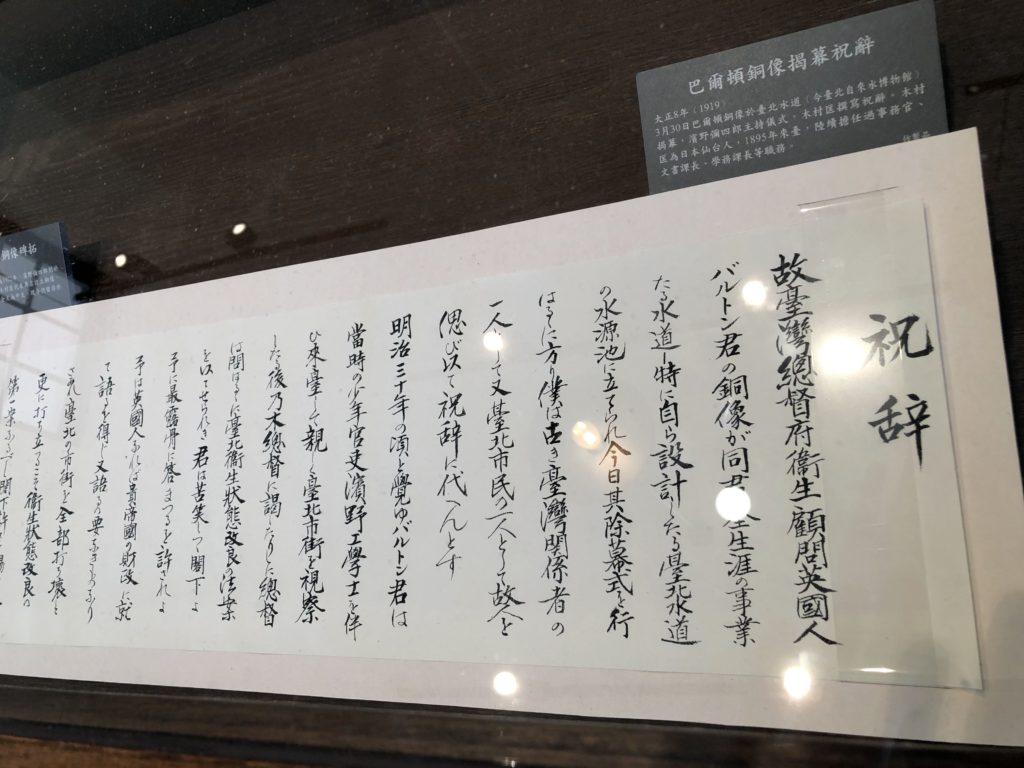 巴爾頓銅像揭幕祝辭
大正8年（1919）
3月30日巴爾頓銅像於臺北水道（今臺北自來水博物館）
揭幕，濱野彌四郎主持儀式，木村匡撰寫祝辭。木村
匡為日本仙台人，1895年來臺，陸續擔任過事務官、
文書課長、學務課長等職務。
銅像碑拓
祝辞
故臺灣總督府衞生顧問英國人
バルトン君の銅像が同君 生涯の事業
たる水道し特に自ら設計したる臺北水道
の水源池に立てられ今日其除幕式を行
はるゝに方り僕は古き臺灣関係者の
一人 して又臺北市民の一人として故人を
偲び以て祝辞に代へんとす
明治三十年の頃と覺ゆバルトン君は
當時の少年官吏濱野工學士を伴
ひ來臺して親しく臺北市街を視察
した後乃木總督に謁したりした總督
は問はるゝに臺北衞生狀態改良の法案
を以てせられき君は苦笑しつ閣下よ
予に最露骨に答まつるを許されよ
予は英國人なれば貴帝國の財政に就
て語るを得ず又語るの要なきなり
されど臺北の市街を全部打ち壊し
更に打ち立つるこそ衞生狀態改良の